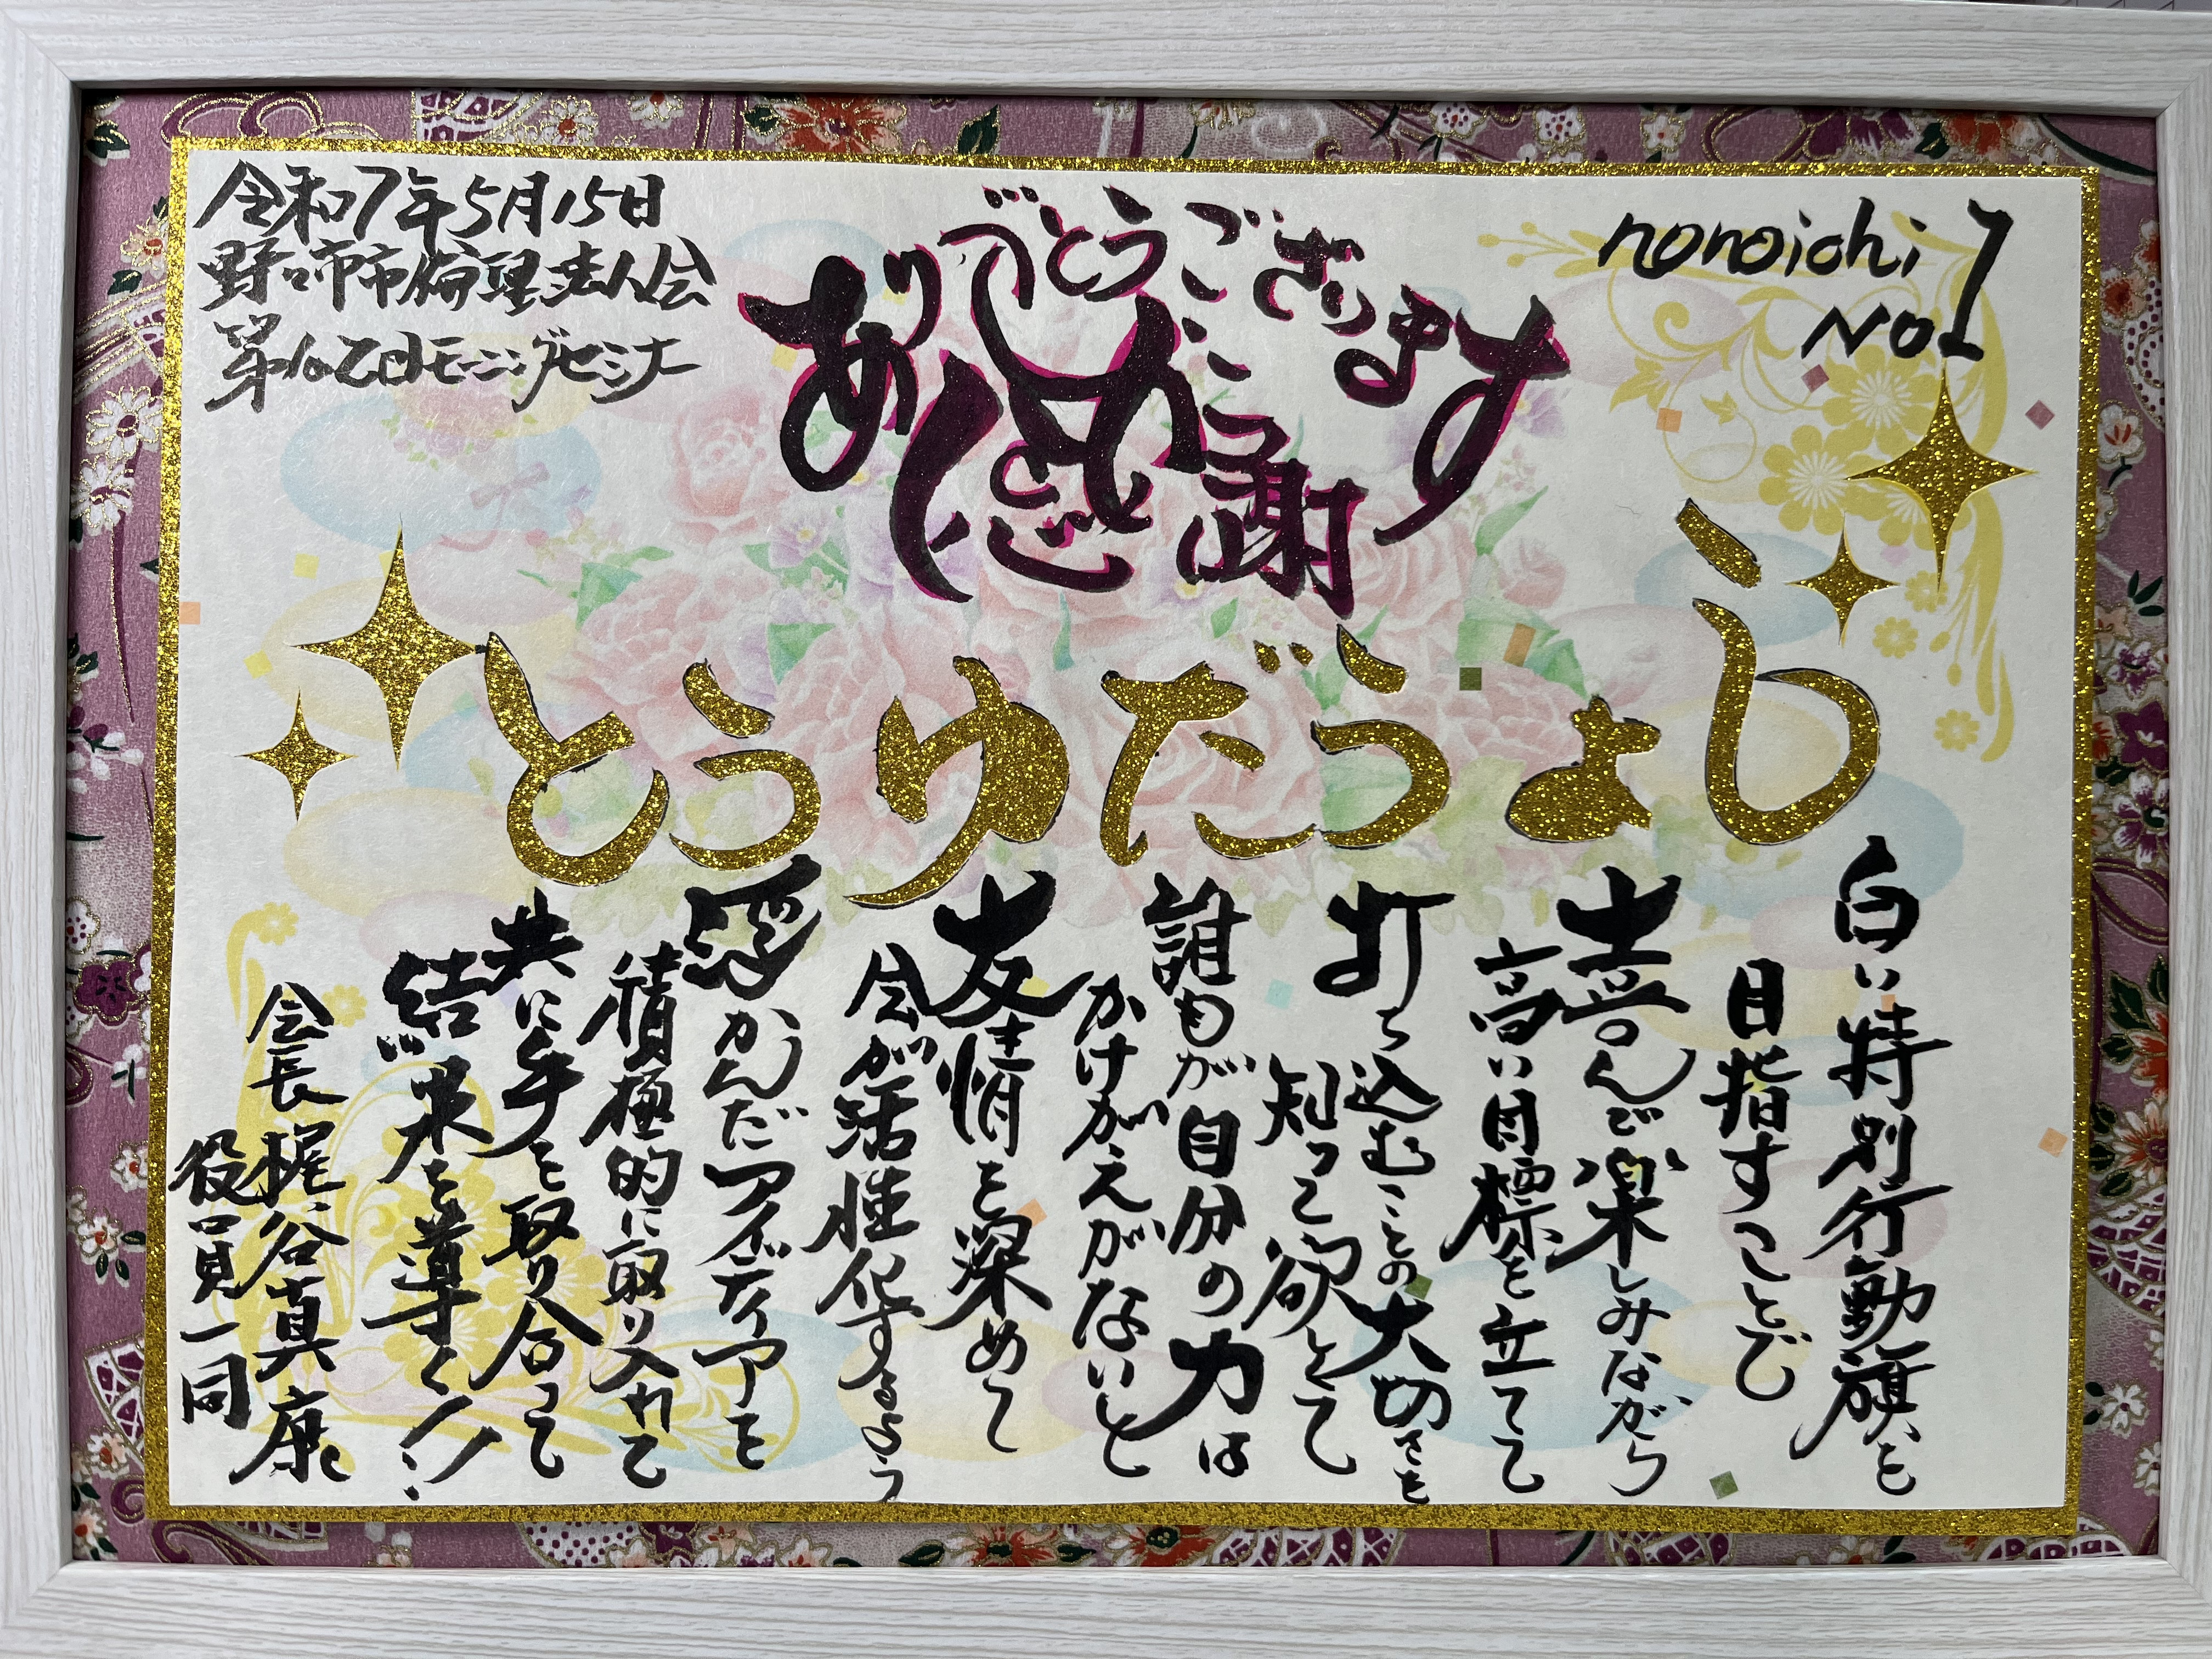 令和7年5月15日
野々市市倫理法人会
モーニングセミナー
ありがとうございます
感謝
nonoichi
No1
しょうだゆうと
白い特別行動旗を
目指すことし
喜んで楽しみながら
高い目標を立てて
打ち込むことの大切さを
知って欲しくて
誰もが自分の力は
かけがえがないと
友情を深めて
会が活性化するよう
浮かんだアイディアを
積極的に取り入れて
共に手を取り合って
結果を導く!!
会長 梶谷真康
役員一同